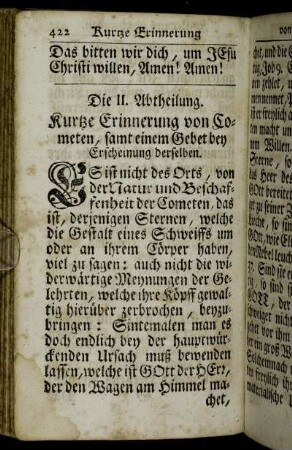 422 Kurtze Erinnerung
Das bitten wir dich, um JEsu
Christi willen, Amen! Amen!
Die II. Abtheilung.
Kurtze Erinnerung von Co-
meten, samt einem Gebet bey
Erscheinung derselben.
ES ist nicht des Orts, von
der Natur und Beschaf-
fenheit der Cometen, das
ist, derjenigen Sternen, welche
die Gestalt eines Schweiffs um
oder an ihrem Cörper haben,
viel zu sagen: auch nicht die wi-
derwärtige Meynungen der Ge-
lehrten, welche ihre Köpff gewal-
tig hierüber zerbrochen, beyzu-
bringen: Sintemalen man es
doch endlich bey der hauptwür-
ckenden Ursach muß bewenden
lassen, welche ist GOtt der HErr,
der den Wagen am Himmel ma-
chet,